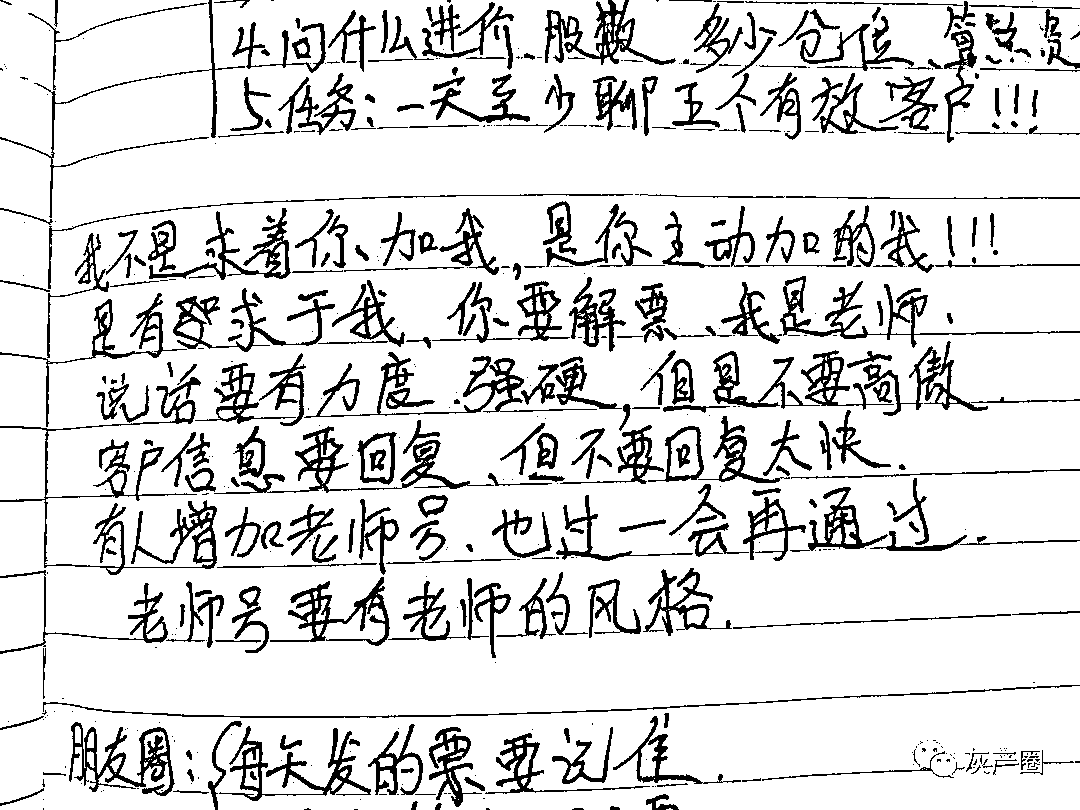 4.问什么进价.股数.多少仓位、算总资
5.任务：一天至少聊五个有效客户!!!
我不是求着你、加我，是你主动加的我!!!
是有求于我、你要解票、我是老师.
说话要有力度.强硬，但是不要高傲.
客户信息要回复、但不要回复太快.
有人增加老师号.也过一会再通过.
老师号要有老师的风格.
朋友圈：每天发的票要说准.
灰产圈